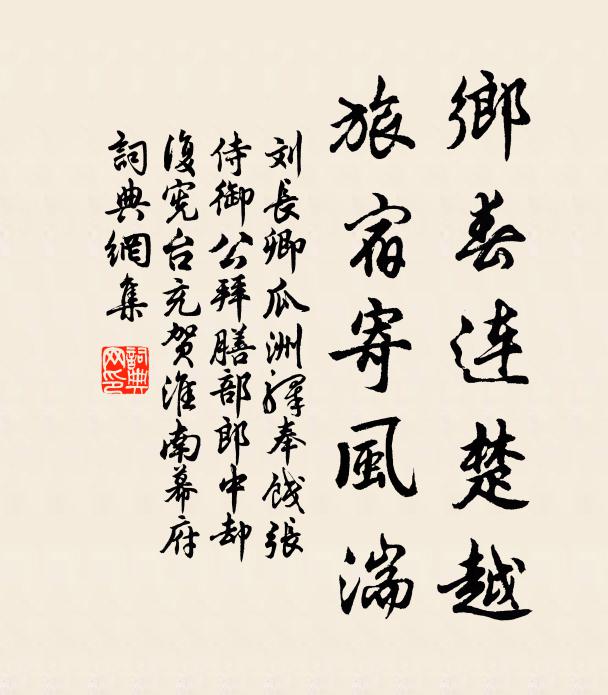 鄉春連楚越
旅宿寄風湍
刘長卿瓜洲驛奉餞張
侍御公拜膳部郎中却
復宪台充賀淮南幕府
詞典網集
詞典网印